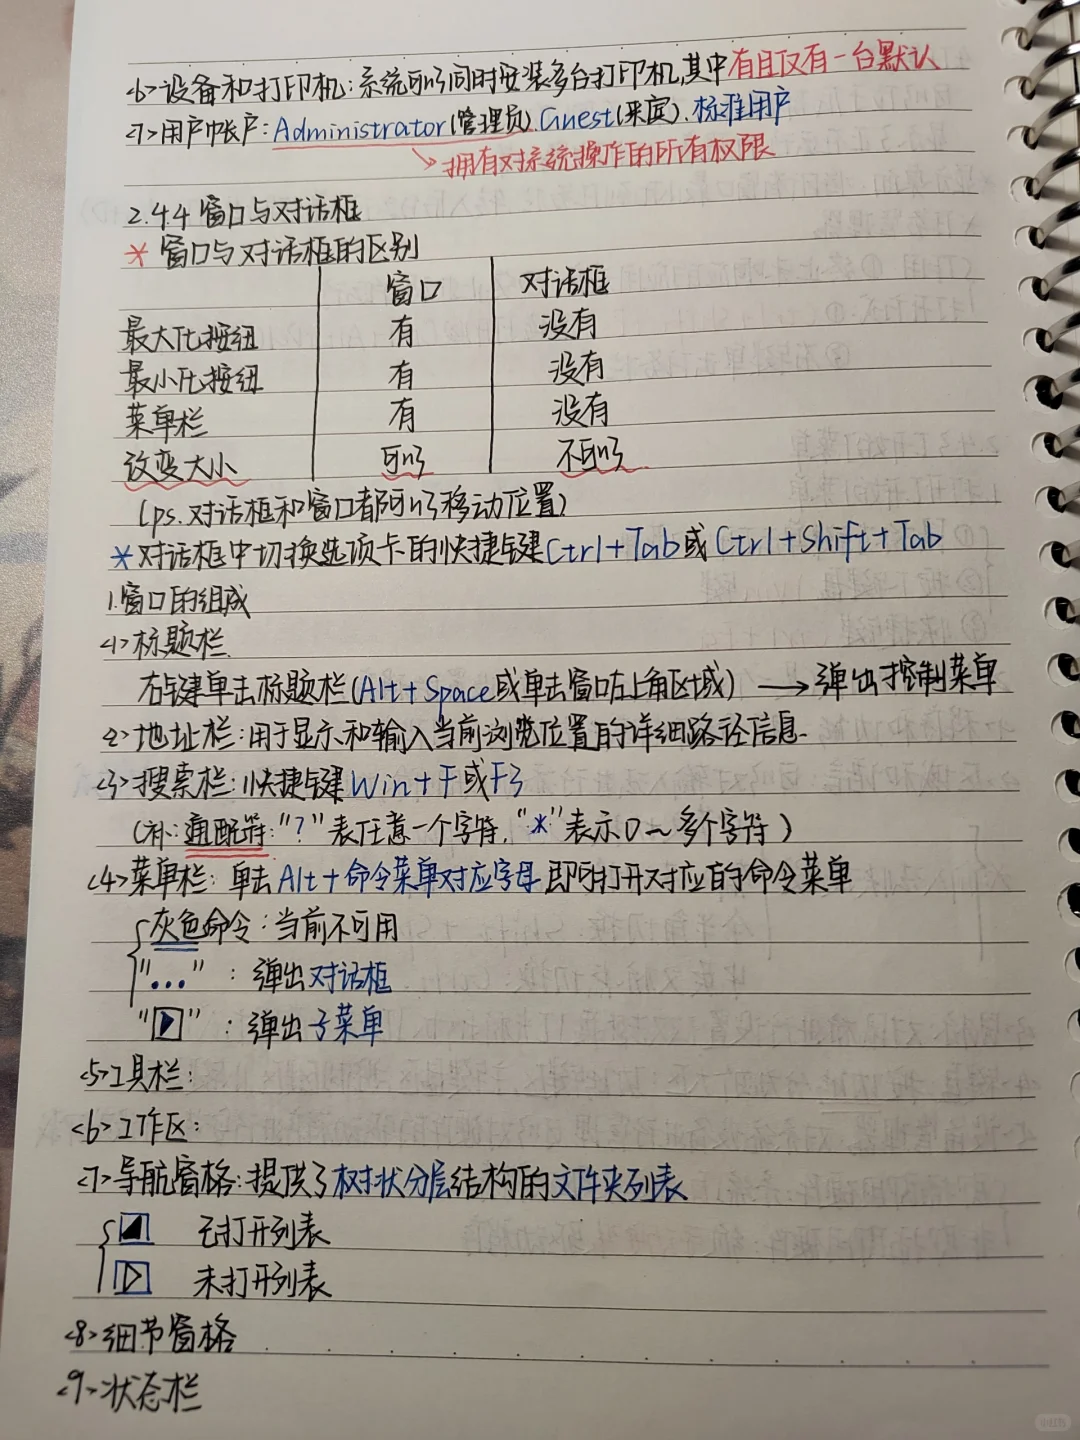 <6>设备和打印机:系统可以同时安装多台打印机,其中有且仅有一台默认
<7>用户帐户:Administrator(管理员).Guest(来宾).标准用户
拥有对系统操作的所有权限
2.4.4 窗口与对话框
* 窗口与对话框的区别
窗口 对话框
最大化按钮 有 没有
最小化按钮 有 没有
菜单栏 有 没有
改变大小 可以 不可以
(ps.对话框和窗口都可以移动位置)
*对话框中切换选项卡的快捷键Ctrl+Tab或Ctrl+Shift+Tab
1.窗口的组成
<1>标题栏
右键单击标题栏(Alt+Space或单击窗口左上角区域) → 弹出控制菜单
<2>地址栏:用于显示和输入当前浏览位置的详细路径信息.
<3>搜索栏:快捷键Win+F或F3
(补:通配符:"?"表任意一个字符,"*"表示0~多个字符)
<4>菜单栏:单击Alt+命令菜单对应字母即可打开对应的命令菜单
灰色命令:当前不可用
"...":弹出对话框
"▶":弹出子菜单
<5>工具栏:
<6>工作区:
<7>导航窗格:提供了树状分层结构的文件夹列表
◢ 已打开列表
▷ 未打开列表
<8>细节窗格
<9>状态栏